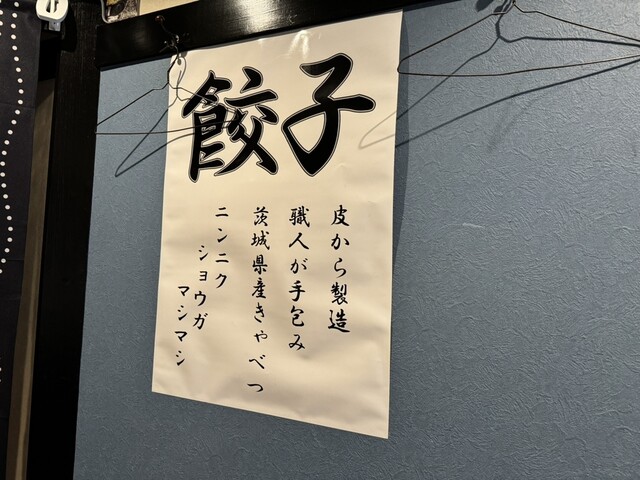 餃子
皮から製造
職人が手包み
茨城県産きゃべつ
ニンニク
ショウガ
マシマシ